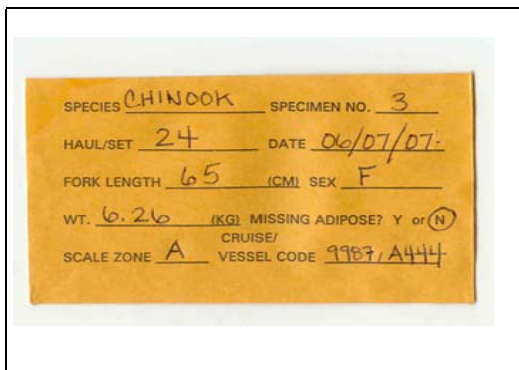 SPECIES CHINOOK SPECIMEN NO. 3
HAUL/SET 24 DATE 06/07/07
FORK LENGTH 65 (CM) SEX F
WT. 6.26 (KG) MISSING ADIPOSE? Y or N
CRUISE/
SCALE ZONE A VESSEL CODE 9987, A444